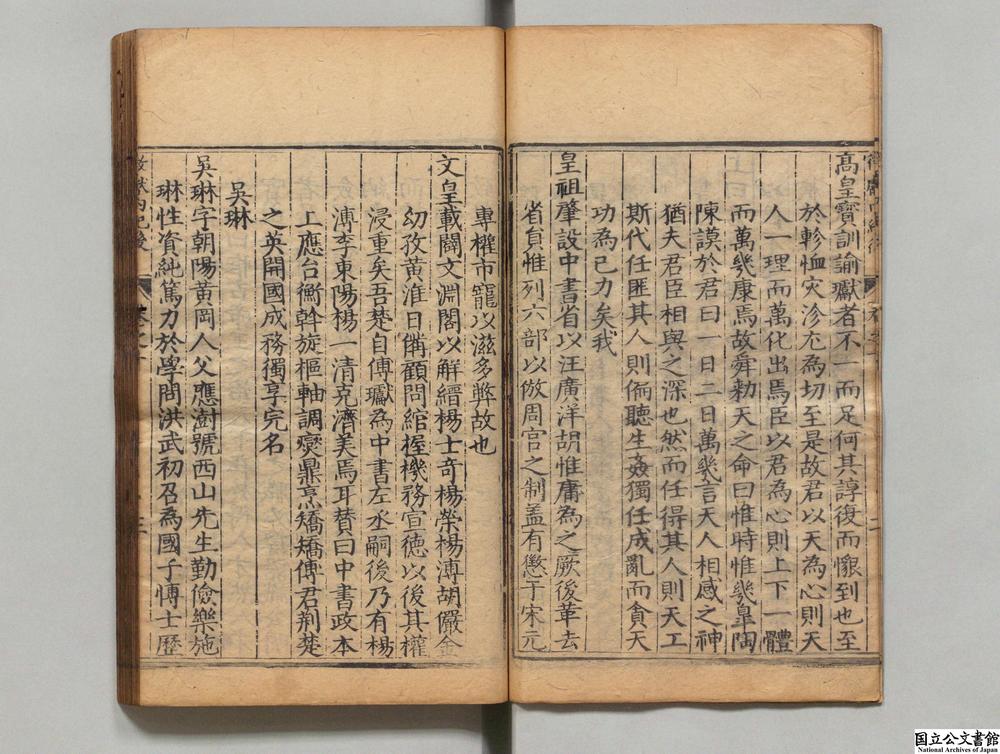 高皇寶訓諭瓛者不一而足何其諄復而懷到也至
於軫恤灾沴尤為切至是故君以天為心則天
人一理而萬化出焉臣以君為心則上下一體
而萬幾康焉故舜勑天之命曰惟時惟幾皐陶
陳謨於君曰一日二日萬幾言天人相感之神
猶夫君臣相與之深也然而任得其人則天工
斯代任匪其人則偏聽生姦獨任成亂而貪天
功為己力矣我
皇祖肇設中書省以汪廣洋胡惟庸為之厥後革去
省負惟列六部以倣周官之制盖有懲于宋元
專權市寵以滋多弊故也
文皇載闢文淵閣以解縉楊士奇楊榮楊溥胡儼金
幼孜黃淮日備顧問綰握機務宣德以後其權
浸重矣吾楚自傅瓛為中書左丞嗣後乃有楊
溥李東陽楊一清克濟美焉耳賛曰中書政本
上應台衡斡旋樞軸調燮鼎烹矯矯傅君荆楚
之英開國成務獨享完名
吳琳
吳琳字朝陽黃岡人父應澍號西山先生勤儉樂施
琳性資純篤力於學問洪武初召為國子博士歷
国立公文書館
National Archives of Japan